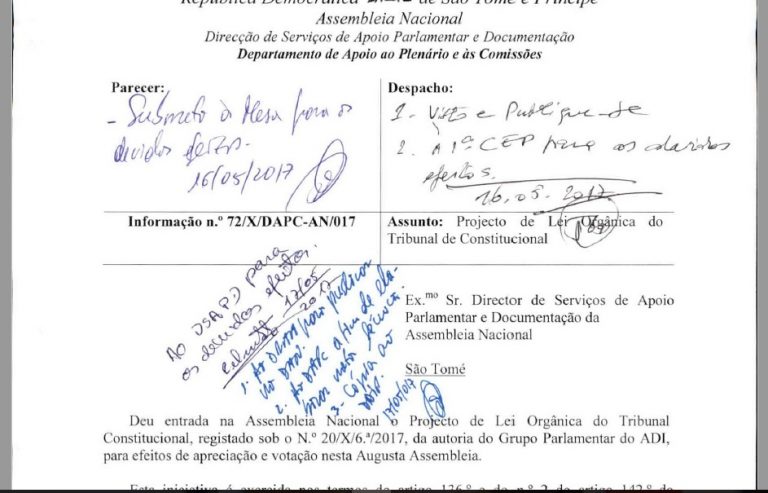 República Democrática de São Tomé e Príncipe
Assembleia Nacional
Direcção de Serviços de Apoio Parlamentar e Documentação
Departamento de Apoio ao Plenário e às Comissões
Parecer:
- Submeto à Mesa para os
devidos efeitos.
16/05/2017
Despacho:
1. Visto e Publique-se
2. A 1ª CEP para os devidos
efeitos.
16.05.2017
Informação n.º 72/X/DAPC-AN/017
Assunto: Projecto de Lei Orgânica do
Tribunal de Constitucional
Ao DSAPD para
os devidos efeitos.
17/05
2017
1. Ao para publicar
no DAN.
2. Ao DAPC a fim de ela-
borar nota técnica.
3- Cópia ao
17/05/2017
Ex.mo Sr. Director de Serviços de Apoio
Parlamentar e Documentação da
Assembleia Nacional
São Tomé
Deu entrada na Assembleia Nacional o Projecto de Lei Orgânica do Tribunal
Constitucional, registado sob o N.º 20/X/6.ª/2017, da autoria do Grupo Parlamentar do ADI,
para efeitos de apreciação e votação nesta Augusta Assembleia.
Esta iniciativa é exercida nos termos do artigo 136.º e do n.º 2 do artigo 142.º do